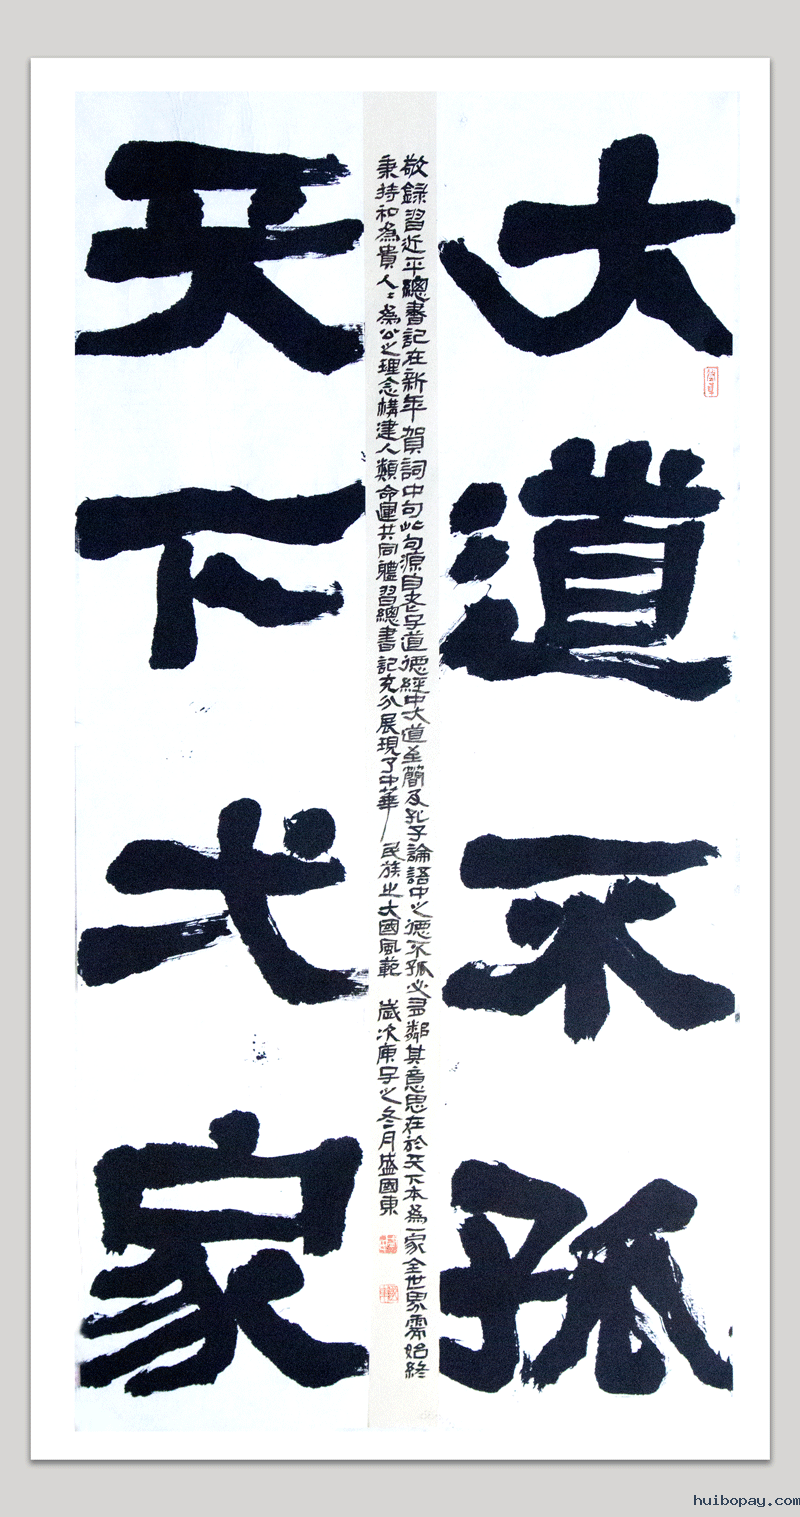 大道不孤
天下弌家
敬錄習近平總書記在新年賀詞中句此句源自老子道德經中大道至簡及孔子論語中之德不孤必有鄰其意思在於天下本為一家全世界需始終
秉持和為貴人〻為公之理念構建人類命運共同體習總書記充分展現了中華民族之大國風範 歲次庚子之冬月盛國東
huibopay.com